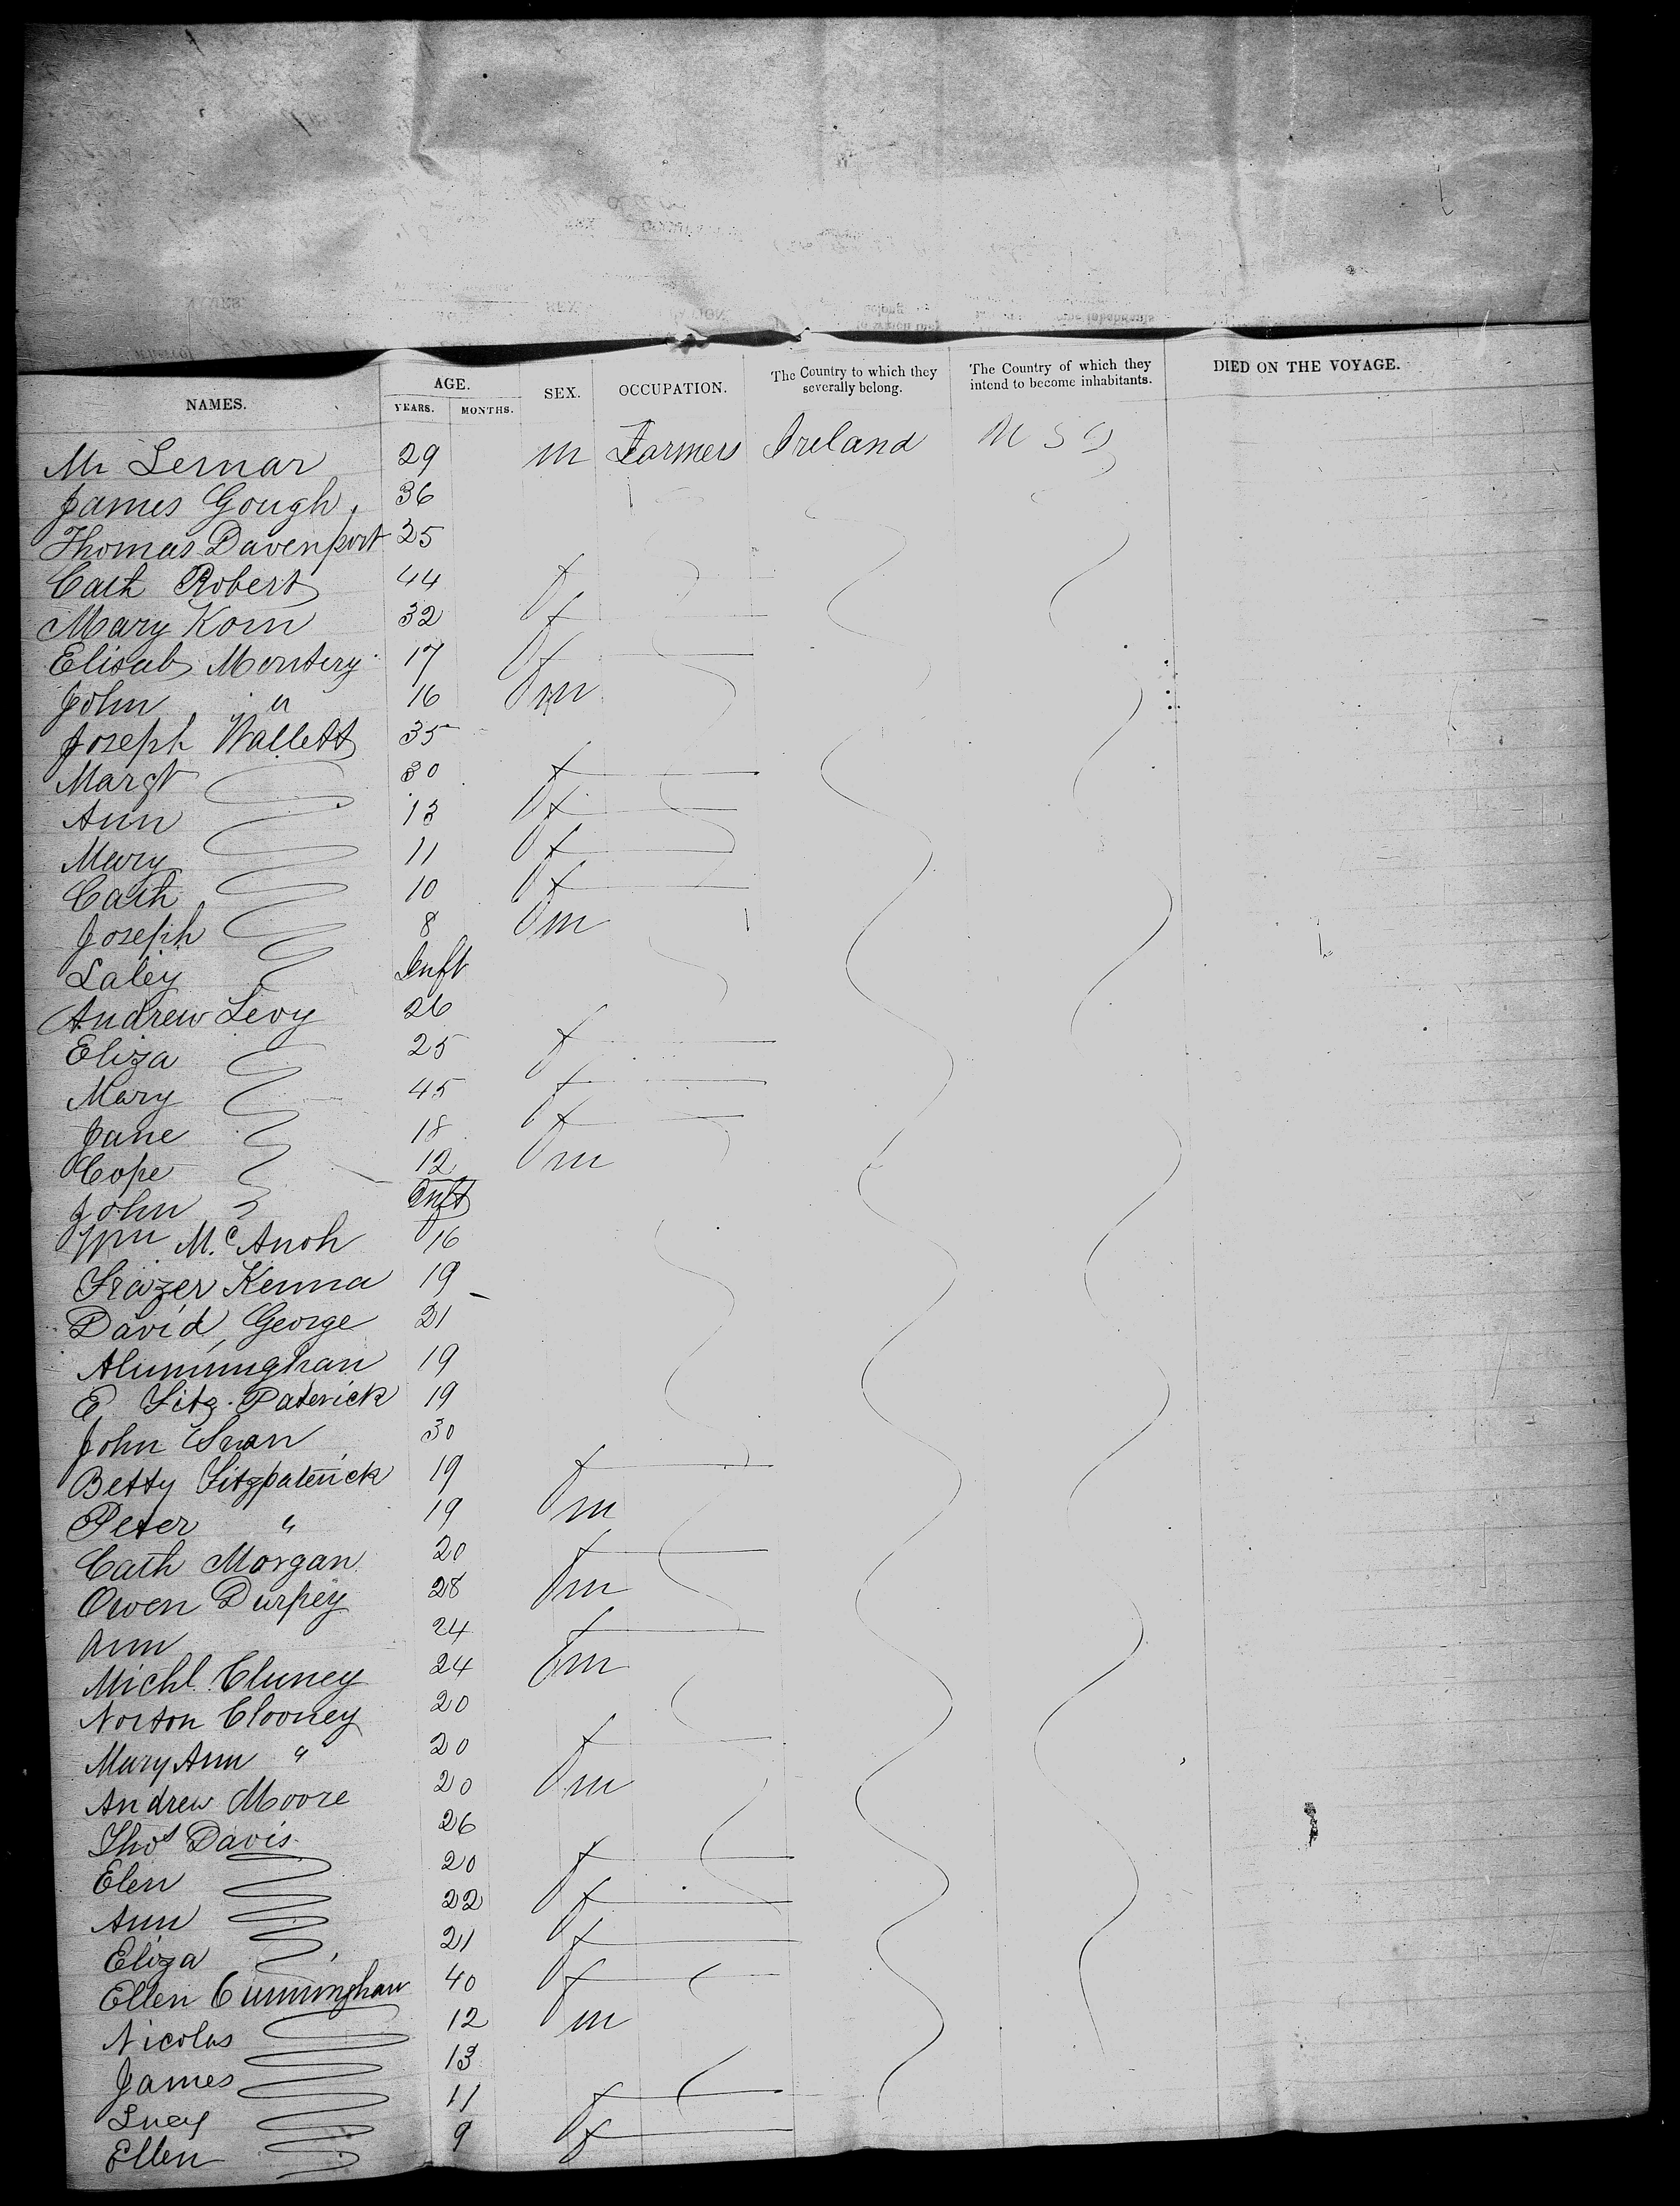 NAMES. AGE. SEX. OCCUPATION. The Country to which they severally belong. The Country of which they intend to become inhabitants. DIED ON THE VOYAGE.
YEARS. MONTHS.
Mr Lernar 29 m Farmers Ireland U S
James Gough 36
Thomas Davenport 25
Cath Robert 44 f
Mary Korn 32 f
Elisab 17 f
John " 16 m
Joseph Wallett 35
Margt 30 f
Ann 13 f
Mary 11 f
Cath 10 f
Joseph 8 m
Laley Inft
Andrew Levy 26
Eliza 25 f
Mary 45 f
Jane 18 f
Cope 12 m
John Inft
Wm Mc Anoh 16
Frazer Kenna 19
David George 21
19
E Fitz Paterick 19
John 30
Betty Fitzpaterick 19 f
Peter " 19 m
Cath Morgan 20 f
Owen Durpey 28 m
Ann 24 f
Michl Cluney 24 m
Norton Clooney 20
Mary Ann " 20 f
Andrew Moore 20 m
Thos Davis 26
Elen 20 f
Ann 22 f
Eliza 21 f
Ellen Cunningham 40 f
Nicolas 12 m
James 13
Lucy 11 f
Ellen 9 f